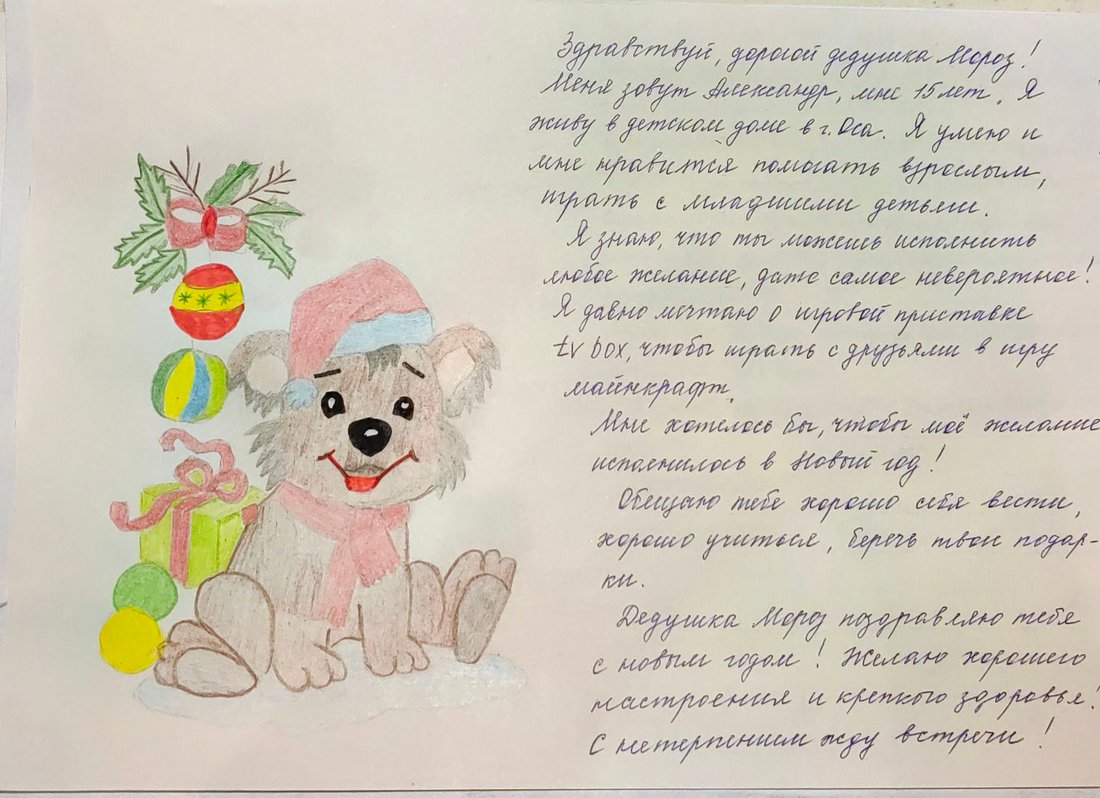 Здравствуй, дорогой дедушка Мороз!
Меня зовут Александр, мне 15 лет. Я
живу в детском доме в г. Оса. Я умею и
мне нравится помогать взрослым,
играть с младшими детьми.
Я знаю, что ты можешь исполнить
любое желание, даже самое невероятное!
Я давно мечтаю о игровой приставке
tv box, чтобы играть с друзьями в игру
майнкрафт.
Мне хотелось бы, чтобы моё желание
исполнилось в Новый год!
Обещаю тебе хорошо себя вести,
хорошо учиться, беречь твои подар-
ки.
Дедушка Мороз поздравляю тебя
с новым годом! Желаю хорошего
настроения и крепкого здоровья!
С нетерпением жду встречи!